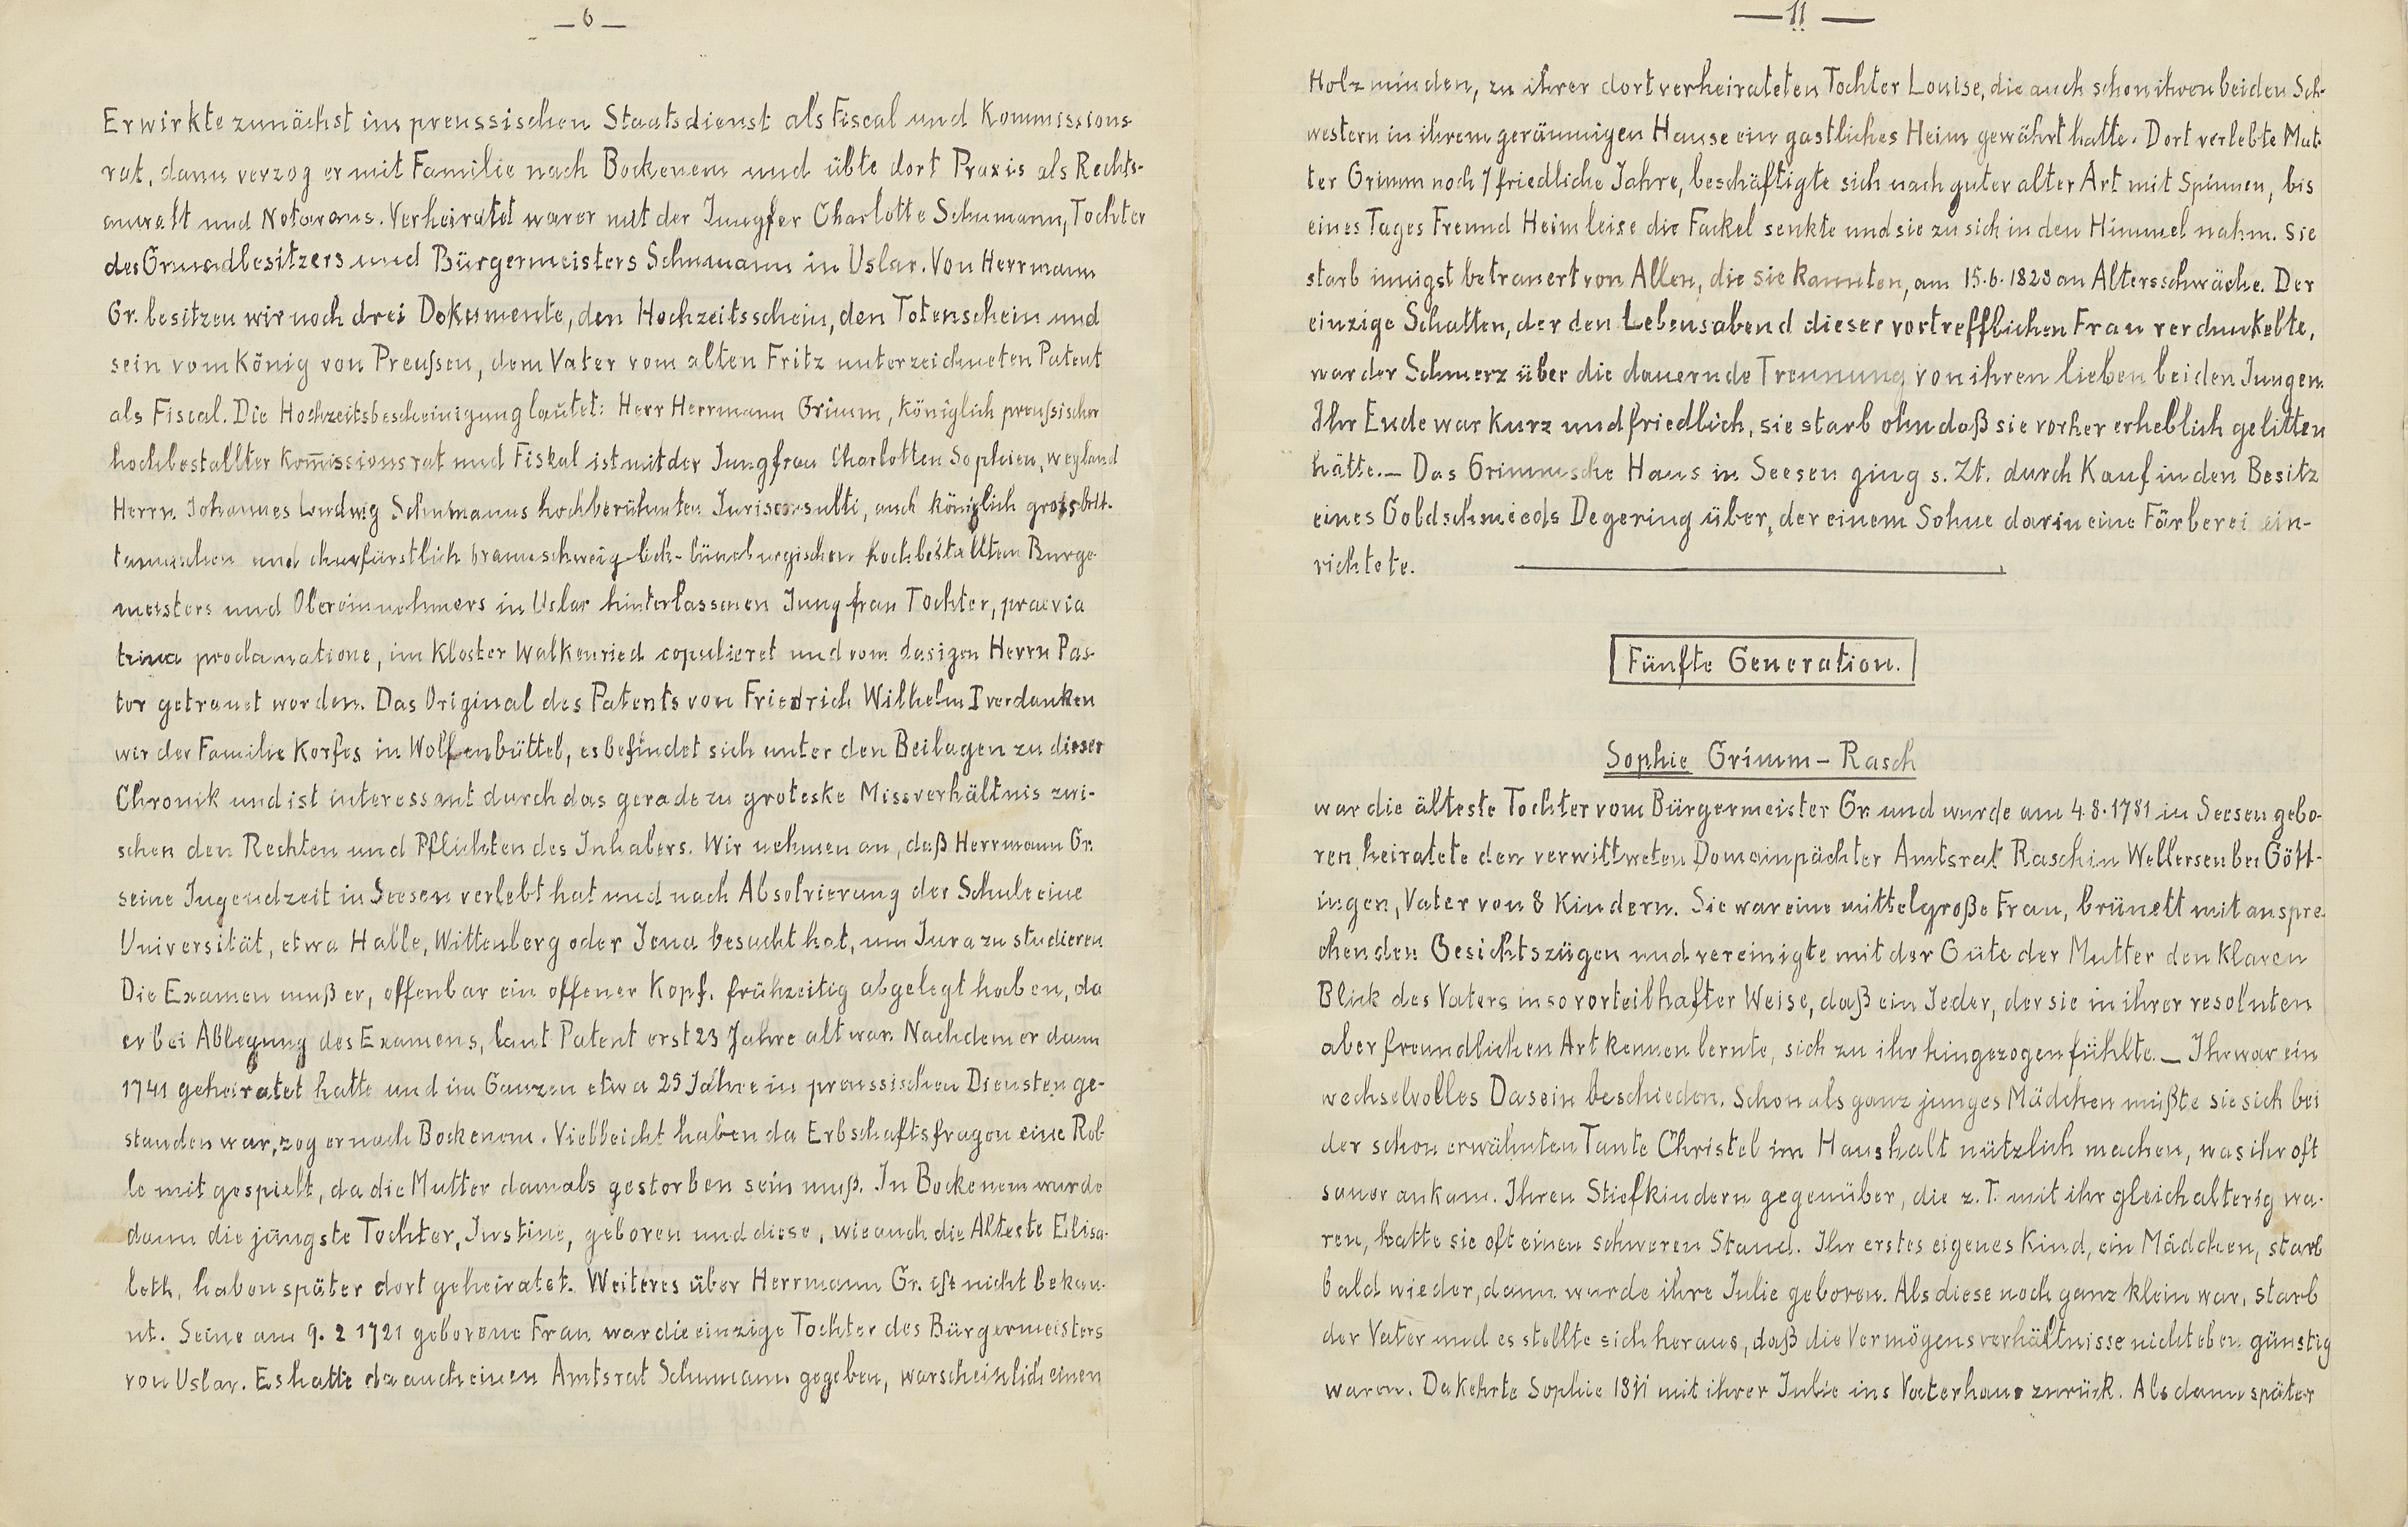 — 6 —
Er wirkte zunächst im preussischen Staatsdienst als Fiscal und Kommissions-
rat, dann verzog er mit Familie nach Bockenem und übte dort Praxis als Rechts-
anwalt und Notar aus. Verheiratet war er mit der Jungfer Charlotte Schumann, Tochter
des Grundbesitzers und Bürgermeisters Schumann in Uslar. Von Herrmann
Gr. besitzen wir noch drei Dokumente, den Hochzeitsschein, den Totenschein und
sein vom König von Preußen, dem Vater vom alten Fritz unterzeichneten Patent
als Fiscal. Die Hochzeitsbescheinigung lautet: Herr Herrmann Grimm, Königlich preußischer
hochbestallter Kom̅issionsrat und Fiskal ist mit der Jungfrau Charlotten Sophien, weyland
Herrn Johannes Ludwig Schumanns hochberühmten Jurisconsulti, auch königlich grossbrit-
tannischen und churfürstlich braunschweiglich-lüneburgischen hochbestallten Burge-
meisters und Obereinnehmers in Uslar hinterlassenen Jungfrau Tochter, praevia
trina proclamatione, im Kloster Walkenried copulieret und vom dasigen Herrn Pas-
tor getrauet worden. Das Original des Patents von Friedrich Wilhelm I verdanken
wir der Familie Korfes in Wolfenbüttel, es befindet sich unter den Beilagen zu dieser
Chronik und ist interessant durch das geradezu groteske Missverhältnis zwi-
schen den Rechten und Pflichten des Inhabers. Wir nehmen an, daß Herrmann Gr.
seine Jugendzeit in Seesen verlebt hat und nach Absolvierung der Schule eine
Universität, etwa Halle, Wittenberg oder Jena besucht hat, um Jura zu studieren
Die Examen muß er, offenbar ein offener Kopf, frühzeitig abgelegt haben, da
er bei Ablegung des Examens, laut Patent erst 23 Jahre alt war. Nachdem er dann
1741 geheiratet hatte und im Ganzen etwa 25 Jahre in preussischen Diensten ge-
standen war, zog er nach Bockenem. Vielleicht haben da Erbschaftsfragen eine Rol-
le mit gespielt, da die Mutter damals gestorben sein muß. In Bockenem wurde
dann die jüngste Tochter, Justine, geboren und diese, wie auch die Älteste Elisa-
beth, haben später dort geheiratet. Weiteres über Herrmann Gr. ist nicht bekan-
nt. Seine am 9. 2 1721 geborene Frau war die einzige Tochter des Bürgermeisters
von Uslar. Es hatte da auch einen Amtsrat Schumann gegeben, warscheinlich einen
— 11 —
Holzminden, zu ihrer dort verheirateten Tochter Louise, die auch schon ihren beiden Sch-
western in ihrem geräumigen Hause ein gastliches Heim gewährt hatte. Dort verlebte Mut-
ter Grimm noch 7 friedliche Jahre, beschäftigte sich nach guter alter Art mit Spinnen, bis
eines Tages Freund Heim leise die Fackel senkte und sie zu sich in den Himmel nahm. Sie
starb innigst betrauert von Allen, die sie kannten, am 15.6.1828 an Altersschwäche. Der
einzige Schatten, der den Lebensabend dieser vortrefflichen Frau verdunkelte,
war der Schmerz über die dauernde Trennung von ihren lieben beiden Jungen.
Ihr Ende war kurz und friedlich, sie starb ohn daß sie vorher erheblich gelitten
hätte. — Das Grimmsche Haus in Seesen ging s. Zt. durch Kauf in den Besitz
eines Goldschmieds Degering über, der einem Sohne darin eine Färberei ein-
richtete.
Fünfte Generation.
Sophie Grimm – Rasch
war die älteste Tochter vom Bürgermeister Gr. und wurde am 4.8.1781 in Seesen gebo-
ren heiratete den verwittweten Domainpächter Amtsrat Rasch in Wellersen bei Gött-
ingen, Vater von 8 Kindern. Sie war eine mittelgroße Frau, brünett mit anspre-
chenden Gesichtszügen und vereinigte mit der Güte der Mutter den klaren
Blick des Vaters in so vorteilhafter Weise, daß ein Jeder, der sie in ihrer resoluten
aber freundlichen Art kennen lernte, sich zu ihr hingezogen fühlte. — Ihr war ein
wechselvolles Dasein beschieden. Schon als ganz junges Mädchen mußte sie sich bei
der schon erwähnten Tante Christel im Haushalt nützlich machen, was ihr oft
sauer ankam. Ihren Stiefkindern gegenüber, die z. T. mit ihr gleichalterig wa-
ren, hatte sie oft einen schweren Stand. Ihr erstes eigenes Kind, ein Mädchen, starb
bald wieder, dann wurde ihre Julie geboren. Als diese noch ganz klein war, starb
der Vater und es stellte sich heraus, daß die Vermögensverhältnisse nicht eben günstig
waren. Da kehrte Sophie 1811 mit ihrer Julie ins Vaterhaus zurück. Als dann später